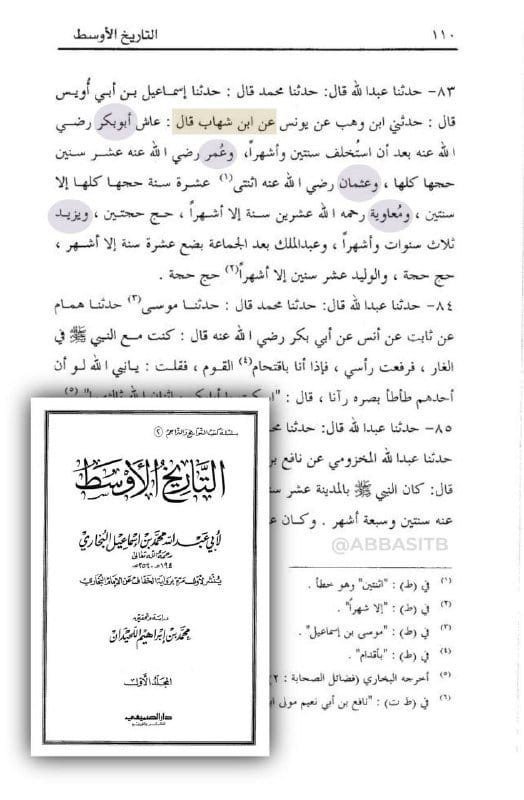 ١١٠ التاريخ الأوسط
٨٣- حدثنا عبدالله قال: حدثنا محمد قال : حدثنا إسماعيل بن أبي أُويس
قال : حدثني ابن وهب عن يونس عن ابن شهاب قال : عاش أبوبكر رضي
الله عنه بعد أن استُخلف سنتين وأشهراً، وعُمر رضي الله عنه عشر سنين
حجها كلها ، وعثمان رضي الله عنه اثنتى(١) عشرة سنة حجها كلها إلا
سنتين ، ومُعاوية رحمه الله عشرين سنة إلا أشهراً ، حج حجتين ، ويزيد
ثلاث سنوات وأشهراً ، وعبدالملك بعد الجماعة بضع عشرة سنة إلا أشهر ،
حج حجة ، والوليد عشر سنين إلا أشهراً(٢) حج حجة .
٨٤- حدثنا عبدالله قال: حدثنا محمد قال : حدثنا موسى(٣) حدثنا همام
عن ثابت عن أنس عن أبي بكر رضي الله عنه قال : كنت مع النبي ﷺ في
الغار ، فرفعت رأسي ، فإذا أنا باقتحام(٤) القوم ، فقلت : يانبي الله لو أن
أحدهم طأطأ بصره رآنا ، قال :
٨٥- حدثنا عبدالله قال: حدثنا
حدثنا عبدالله المخزومي عن نافع بن
قال: كان النبي ﷺ بالمدينة عشر س
عنه سنتين وسبعة أشهر . وكان ع
@ABBASITB
(١) في (ط) : "اثنتين" وهو خطأ .
(٢) في (ط) : "إلا شهراً" .
(٣) في (ط) : "موسى بن إسماعيل" .
(٤) في (ط) : "بأقدام" .
(٥) أخرجه البخاري (فضائل الصحابة : ٢
(٦) في (ط ت) : "نافع بن أبي نعيم مولى اب
سلسلة كتب التواريخ والتراجم ٢
التاريخ الأوسط
لأبي عبدالله محمد بن إسماعيل البخاري
رحمه الله تعالى
١٩٤ه - ٢٥٦ه
يُنشر لأول مرة برواية الخفاف عن الإمام البخاري
دراسة وتحقيق
محمد بن إبراهيم اللحيدان
المجلد الأول
دار الصميعي
للنشر والتوزيع